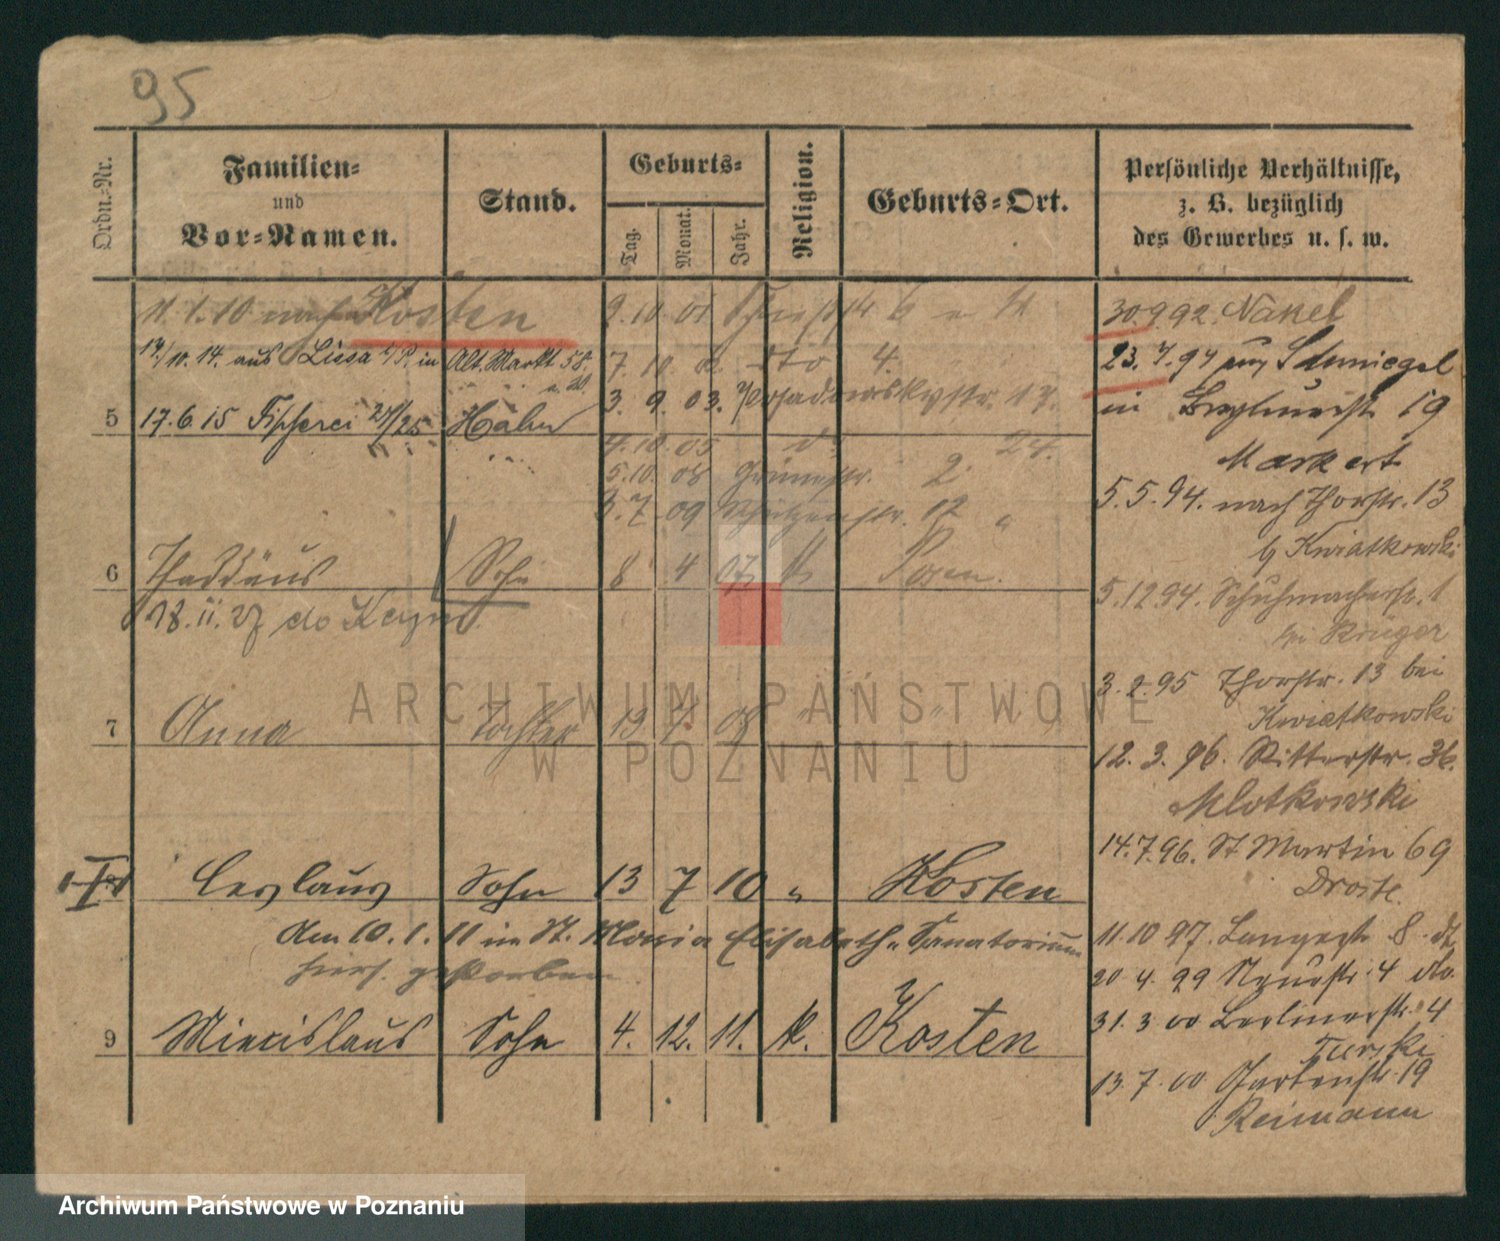 95
Ordn.-Nr.
Familien-
und
Vor-Namen.
Stand.
Geburts-
Tag.
Monat.
Jahr.
Religion.
Geburts-Ort.
Persönliche Verhältnisse,
z. B. bezüglich
des Gewerbes u. s. w.
11.1.10 nach Kosten
14/10.14. aus Lissa i/P. in Alt. Markt 58.
5 17.6.15 Fischerei 24/25 Hahn
2.10.01
7.10.02. dto 4.
3.9.03. Posadowskystr. 17.
4.10.05 24.
5.10.08 Grünestr. 2.
3.7.09 Schützenstr. 12
6 Thaddäus Sohn 8 4 07 k Posen.
18.11.27 do Kcyni
7 Anna Tochter 13 7. 08 " "
Ceslaus Sohn 13 7 10 " Kosten
Am 10.1.11 im St. Maria Elisabeth-Sanatorium
hiers. gestorben
9 Miecislaus Sohn 4. 12. 11. k. Kosten
30.9.92. Nakel
23.7.94 aus Schmiegel
in 19
Markert
5.5.94. nach Thorstr. 13
b/ Kwiatkowski
5.12.94. Schuhmacherstr. 1
bei Krüger
3.2.95 Thorstr. 13 bei
Kwiatkowski
12.3.96. Ritterstr. 36.
Mlotkowski
14.7.96. St Martin 69
Droste.
11.10.97. Langestr. 8.
20.4.99 Neuestr. 4 dto.
31.3.00 Berlinerstr. 4
Turski
13.7.00 Gartenstr. 19
Reimann
ARCHIWUM PAŃSTWOWE
W POZNANIU
Archiwum Państwowe w Poznaniu